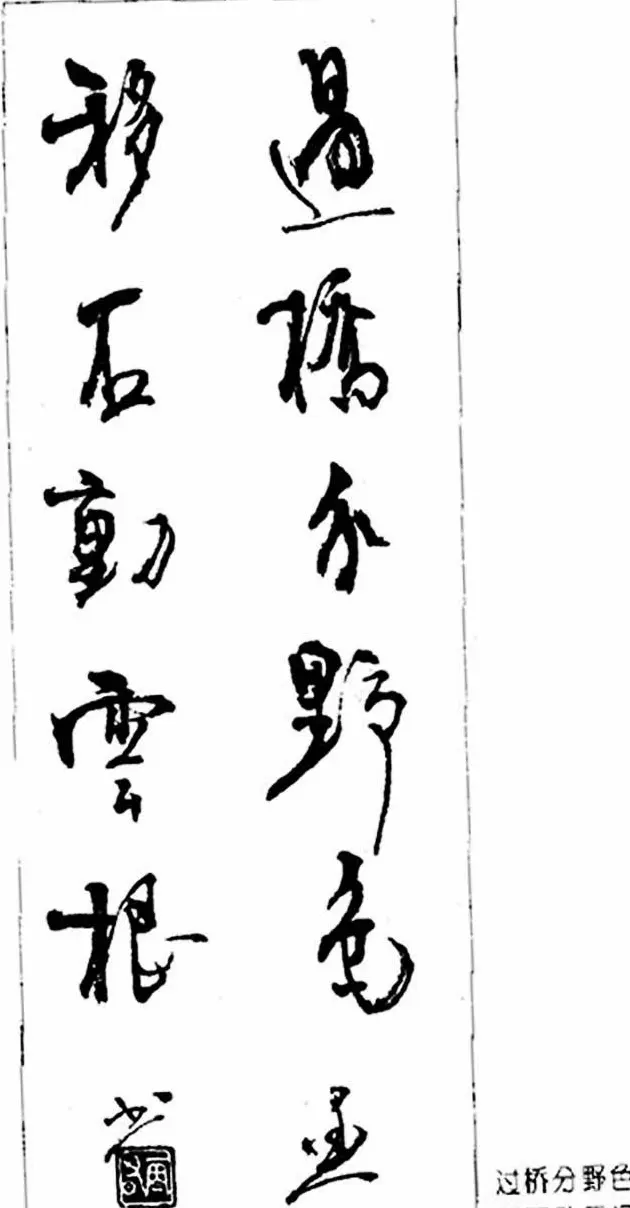 過橋分野色
移石動雲根
过桥分野色